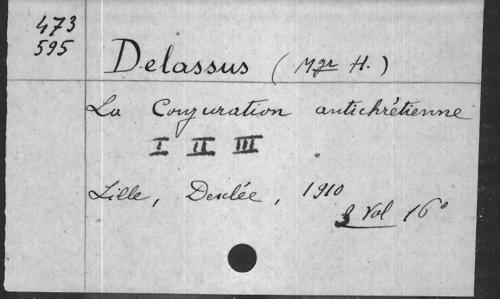 473
595
Delassus (Mgr H.)
La Conjuration antichrétienne
I II III
Lille, Desclée, 1910
3 Vol 16°